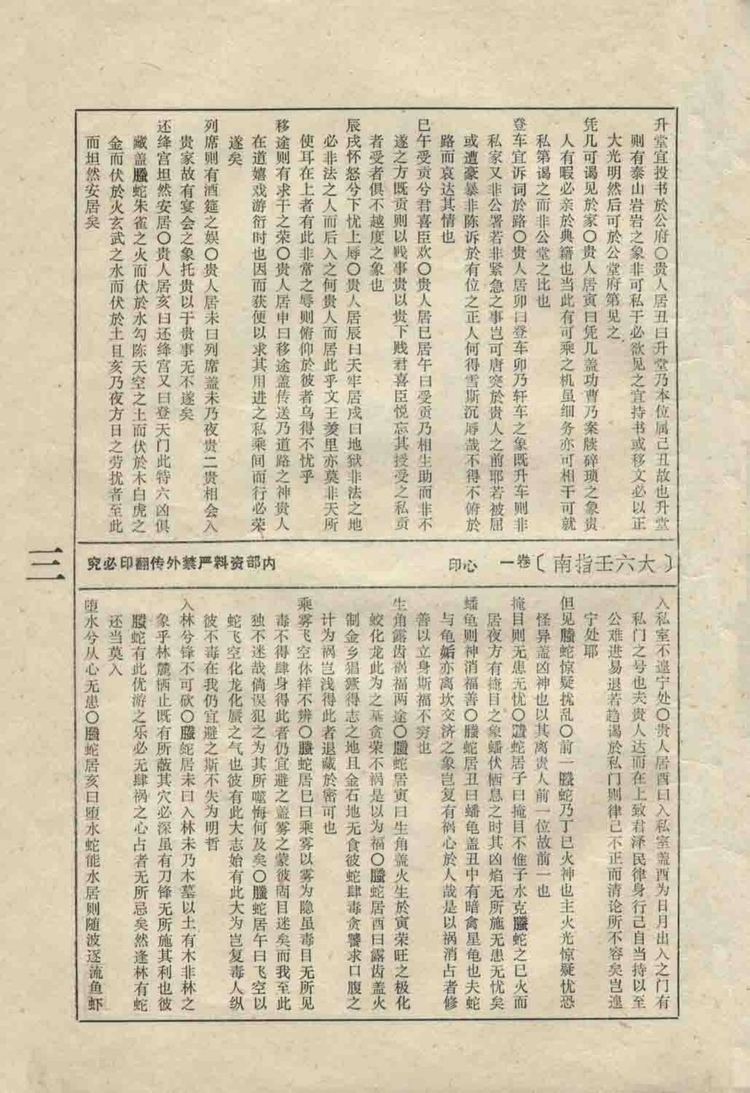 升堂宜投书於公府〇贵人居丑曰升堂乃本位属己丑故也升堂
则有泰山岩岩之象非可私于必欲见之宜持书或移文必以正
大光明然后可於公堂府第见之
凭几可谒见於家〇贵人居寅曰凭几盖功曹乃案牍碎琐之象贵
人有暇必亲於典籍也当此有可乘之机虽细务亦可相干可就
私第谒之而非公堂之比也
登车宜诉词於路〇贵人居卯曰登车卯乃轩车之象既升车则非
私家又非公署若非紧急之事岂可唐突於贵人之前耶若被屈
或遭豪暴非陈诉於有位之正人何得雪斯沉辱哉不得不俯於
路而哀达其情也
巳午受贡兮君喜臣欢〇贵人居巳居午曰受贡乃相生助而非不
遂之方既贡则以贱事贵以贵下贱君喜臣悦忘其授受之私贡
者受者俱不越度之象也
辰戌怀怒兮下忧上辱〇贵人居辰曰天牢居戌曰地狱非法之地
必非法之人而后入之何贵人而居此乎文王羑里亦莫非天所
使耳在上者有此非常之辱则俯仰於彼者乌得不忧乎
移途则有求干之荣〇贵人居申曰移途盖传送乃道路之神贵人
在道嬉戏游衍时也因而获便以求其用进之私乘间而行必荣
遂矣
列席则有酒筵之娱〇贵人居未曰列席盖未乃夜贵二贵相会入
贵家故有宴会之象托贵以干贵事无不遂矣
还绛宫坦然安居〇贵人居亥曰还绛宫又曰登天门此特六凶俱
藏盖螣蛇朱雀之火而伏於水勾陈天空之土而伏於木白虎之
金而伏於火玄武之水而伏於土且亥乃夜方日之劳扰者至此
而坦然安居矣
〔大六壬指南〕卷一 心印
内部资料严禁外传翻印必究
三一
入私室不遑宁处〇贵人居酉曰入私室盖酉为日月出入之门有
私门之号也夫贵人达而在上致君泽民律身行己自当持以至
公难进易退若趋谒於私门则律己不正而清论所不容矣岂遑
宁处耶
但见螣蛇惊疑扰乱〇前一螣蛇乃丁巳火神也主火光惊疑忧恐
怪异盖凶神也以其离贵人前一位故前一也
掩目则无患无忧〇螣蛇居子曰掩目不惟子水克螣蛇之巳火而
居夜方有掩目之象蟠伏栖息之时其凶焰无所施无患无忧矣
蟠龟则神消福善〇螣蛇居丑曰蟠龟盖丑中有暗禽星龟也夫蛇
与龟姤亦离坎交济之象岂复有祸心於人哉是以祸消占者修
善以立身斯福不穷也
生角露齿祸福两途〇螣蛇居寅曰生角盖火生於寅荣旺之极化
蛟化龙此为之基贪荣不祸是以为福〇螣蛇居酉曰露齿盖火
制金乡猖獗得志之地且金石地无食彼蛇肆毒贪饕求口腹之
计为祸岂浅得此者退藏於密可也
乘雾飞空休祥不辨〇螣蛇居巳曰乘雾以雾为隐虽毒目无所见
毒不得肆身得此者仍宜避之盖雾之蒙彼固目迷矣而我至此
独不迷哉倘误犯之为其所噬悔何及矣〇螣蛇居午曰飞空以
蛇飞空化龙化蜃之气也彼有此大志始有此大为岂复毒人纵
彼不毒在我仍宜避之斯不失为明哲
入林兮锋不可砍〇螣蛇居未曰入林未乃木墓以土有木非林之
象乎林麓栖止既有所蔽其穴必深虽有刀锋无所施其利也彼
螣蛇有此优游之乐必无肆祸之心占者无所忌矣然逢林有蛇
还当莫入
堕水兮从心无患〇螣蛇居亥曰堕水蛇能水居则随波逐流鱼虾